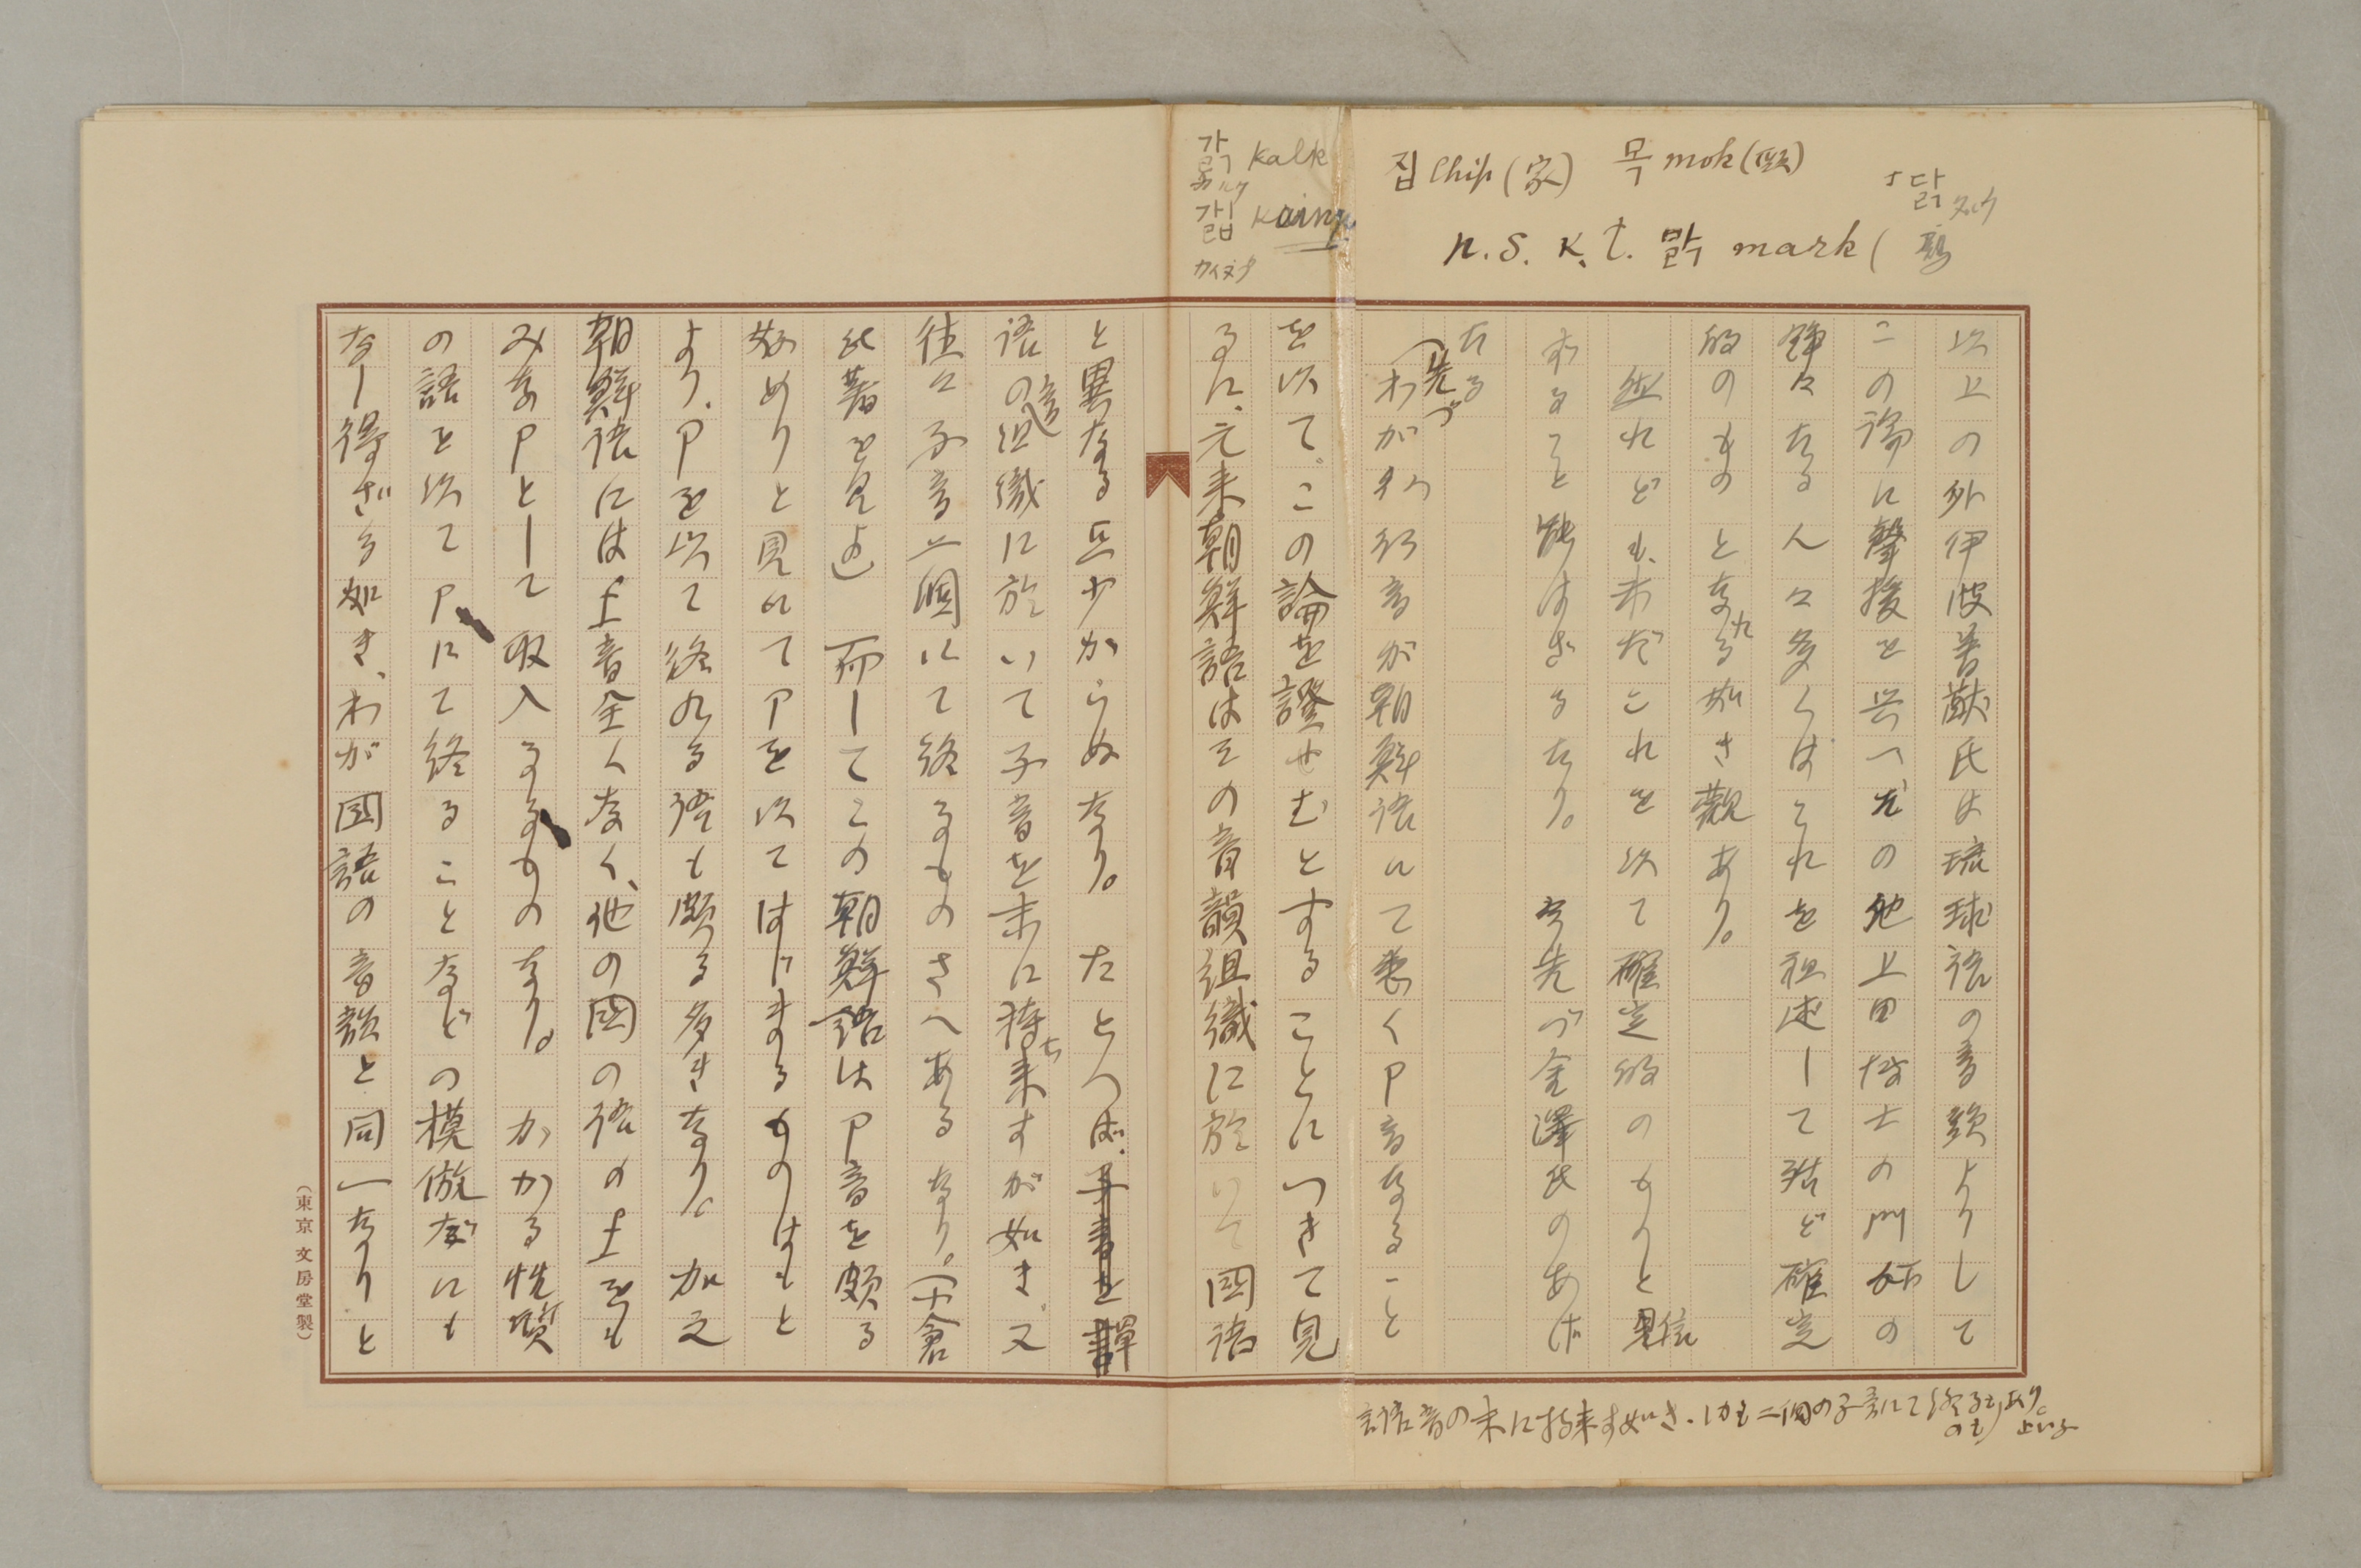 가ᇌ kalk
カルク
kainp
カイヌプ
집 chip (家) 목 mok (頸)
닭 タルク
n. s. k. t. 맑 mark ( 鶏
以上の外伊波普猷氏は琉球語の音韻よりして
この論に聲援を與へ尤の他上田博士の門下の
錚々たる人々多くはこれを祖述して殆ど確定
的のものとなれる如き觀あり。
然れども、未だこれを以て確定的のものと信
ずること能はざるなり。 今先づ金澤氏のあげ
たる
(先づ
わがハ行音が朝鮮語にて悉くP音なること
を以て、この論を證せむとすることにつきて見
るに、元来朝鮮語はその音韻組織に於いて國語
と異なる點少からぬなり。 たとへば、子音を
語の音組織に於いて子音を末に持ち来すが如き、又
往々子音二個にて終るものさへあるなり。(小倉
氏著を見よ) 而してこの朝鮮語はP音を頗る
好めりと見えてPを以てはじまるものはもと
より、Pを以て終れる語も頗る多きなり。 加之
朝鮮語にはf音全くなく、他の国の語のfをも
みなPとして取入るるものなり。 かかる性質
の語を以てPにて終ることなどの模倣だにも
なし得ざる如き、わが國語の音韻と同一なりと
語音の末に持来す如き、しかも二個の子音にて終るものもあり。
(東京文房堂製)